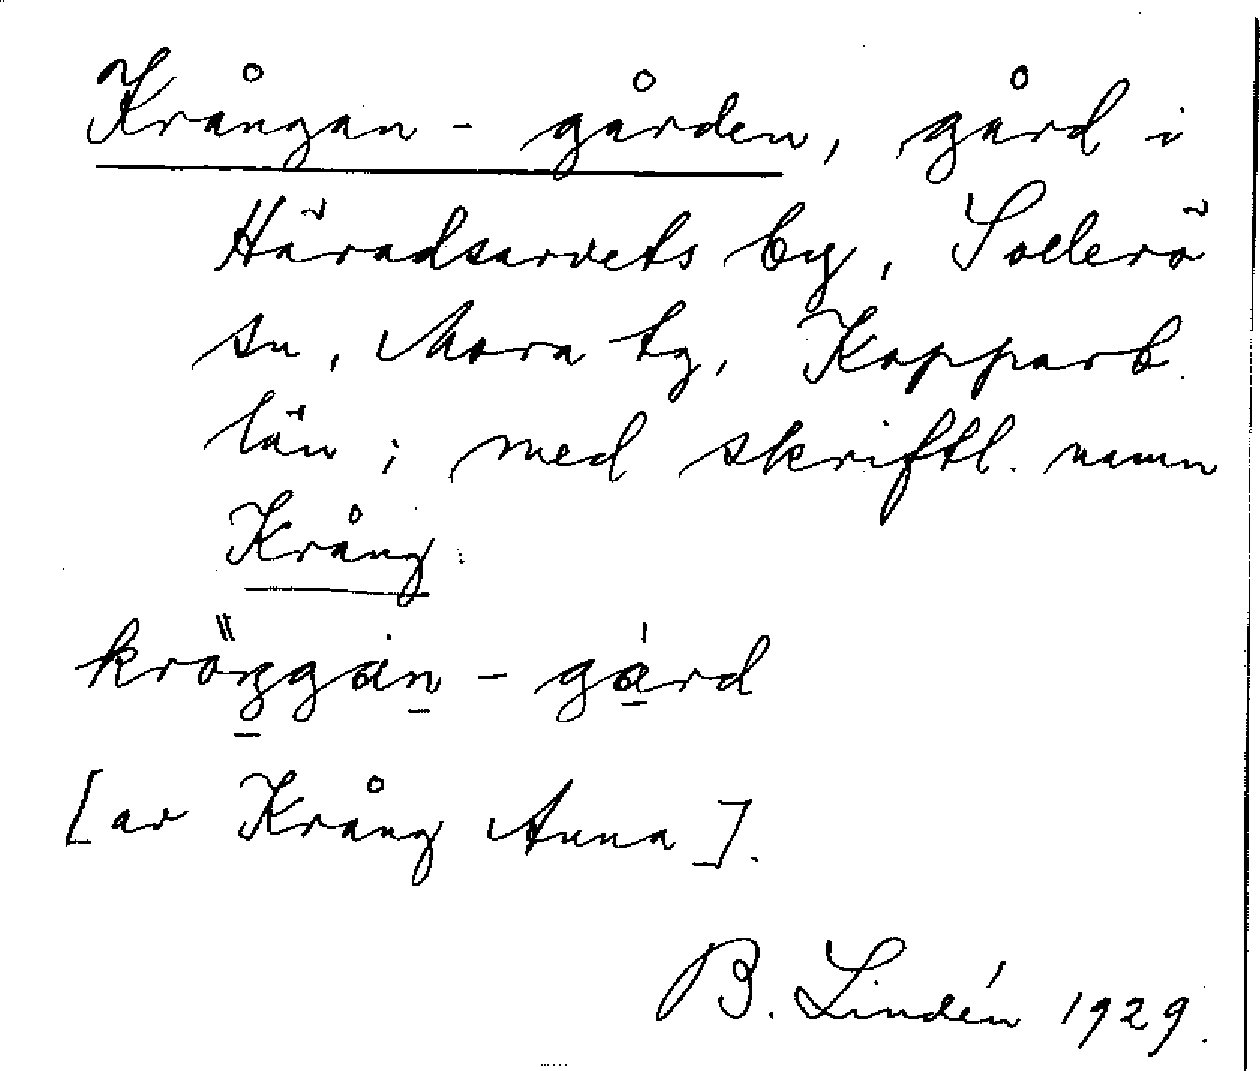 Krångan - gården, gård i
Häradsarvets by, Sollerö
sn, Mora tg, Kopparb.
län; med skriftl. namn
Krång.
kröŋgan - gárd
[av Krång Anna].
B. Lindén 1929.